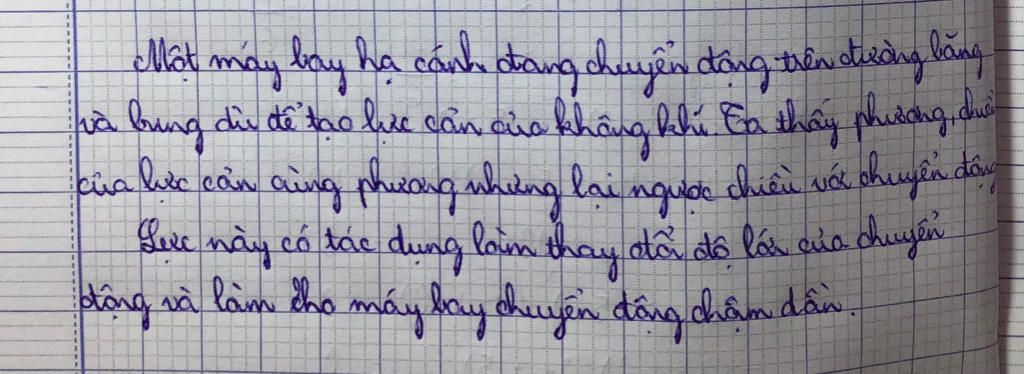 Một máy bay hạ cánh đang chuyển động trên đường băng
và bung dù để tạo lực cản của không khí. Ta thấy phương, chiều
của lực cản cùng phương nhưng lại ngược chiều với chuyển động
Lực này có tác dụng làm thay đổi độ lớn của chuyển
động và làm cho máy bay chuyển động chậm dần.